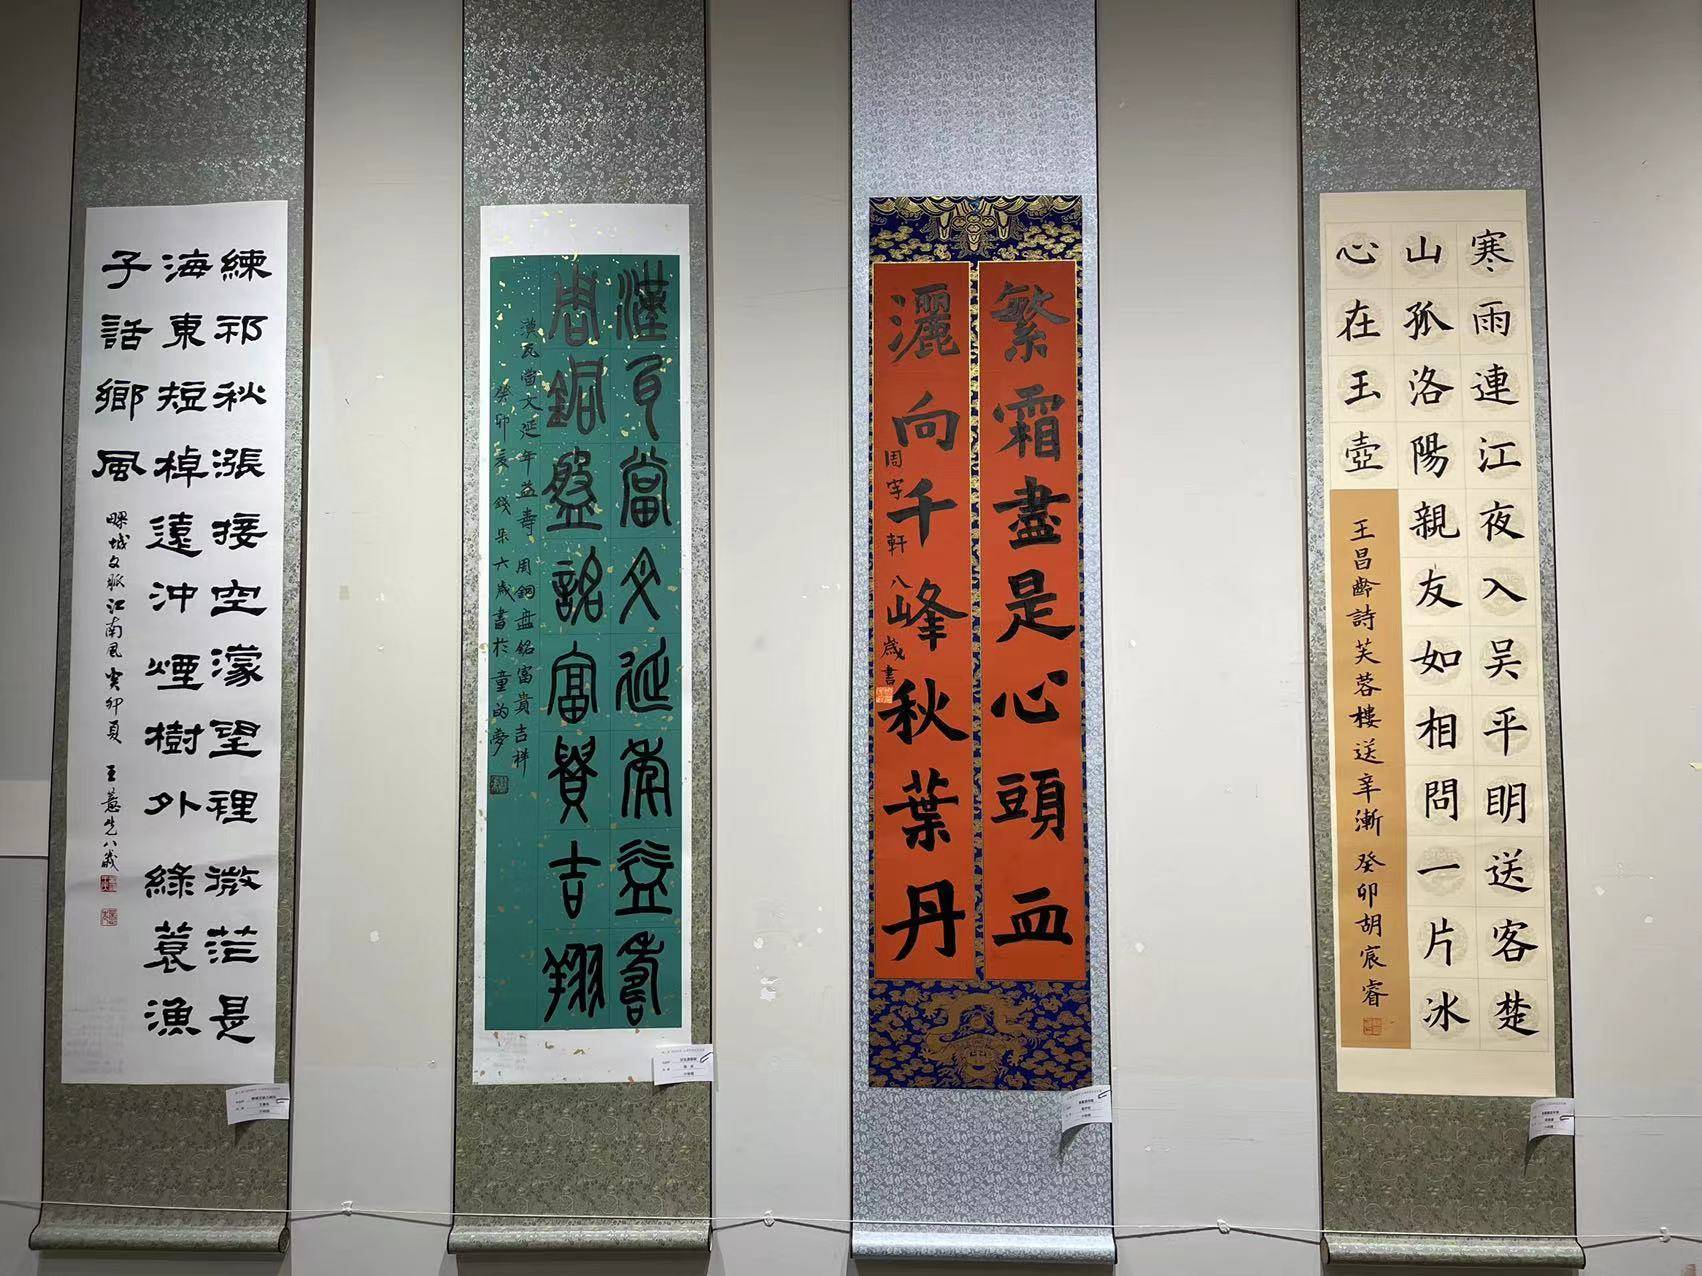 練祁秋漲接空濛望裡微茫是
海東短棹遠沖煙樹外綠蓑漁
子話鄉風
疁城文脈江南風 癸卯夏 王薏先八歲
漢瓦當文延年益壽
周銅盤銘富貴吉翔
漢瓦當文延年益壽 周銅盤銘富貴吉祥
癸卯夏 錢朵六歲書於童的夢
繁霜盡是心頭血
灑向千峰秋葉丹
周宇軒八歲書
寒雨連江夜入吴平明送客楚
山孤洛陽親友如相問一片冰
心在玉壺
王昌齡詩芙蓉樓送辛漸 癸卯胡宸睿